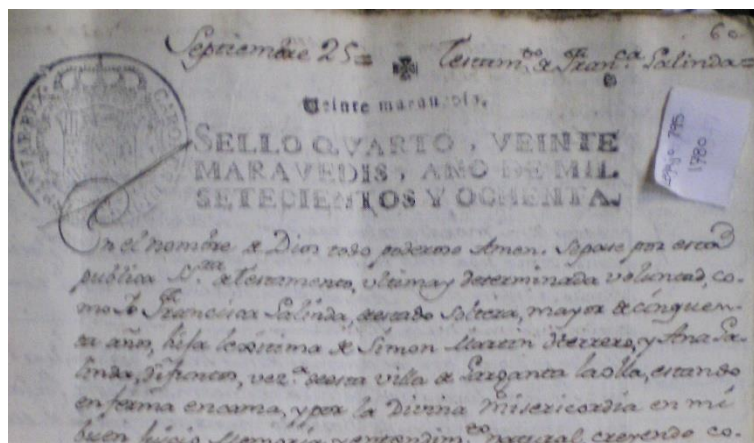 60
Septiembre 25= Testam.to de Fran.ca Salinda=
Veinte maravedis.
SELLO QVARTO, VEINTE
MARAVEDIS, AÑO DE MIL
SETECIENTOS Y OCHENTA.
1780
En el nombre de Dios todo poderoso Amen. Sepase por esta
publica S.ra de testamento, ultima y determinada voluntad, co-
mo Yo Francisca Salinda, de estado soltera, mayor de cinquen-
ta años, hija lexitima de Simon Martin Herrero, y Ana Sa-
linda, difuntos, vez.a de esta villa de Garganta la olla, estando
enferma en cama, y por la Divina Misericordia en mi
buen juicio Memoria y entendim.to natural creyendo co-